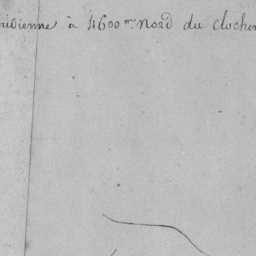 ridienne à 4600 m. Nord du clocher